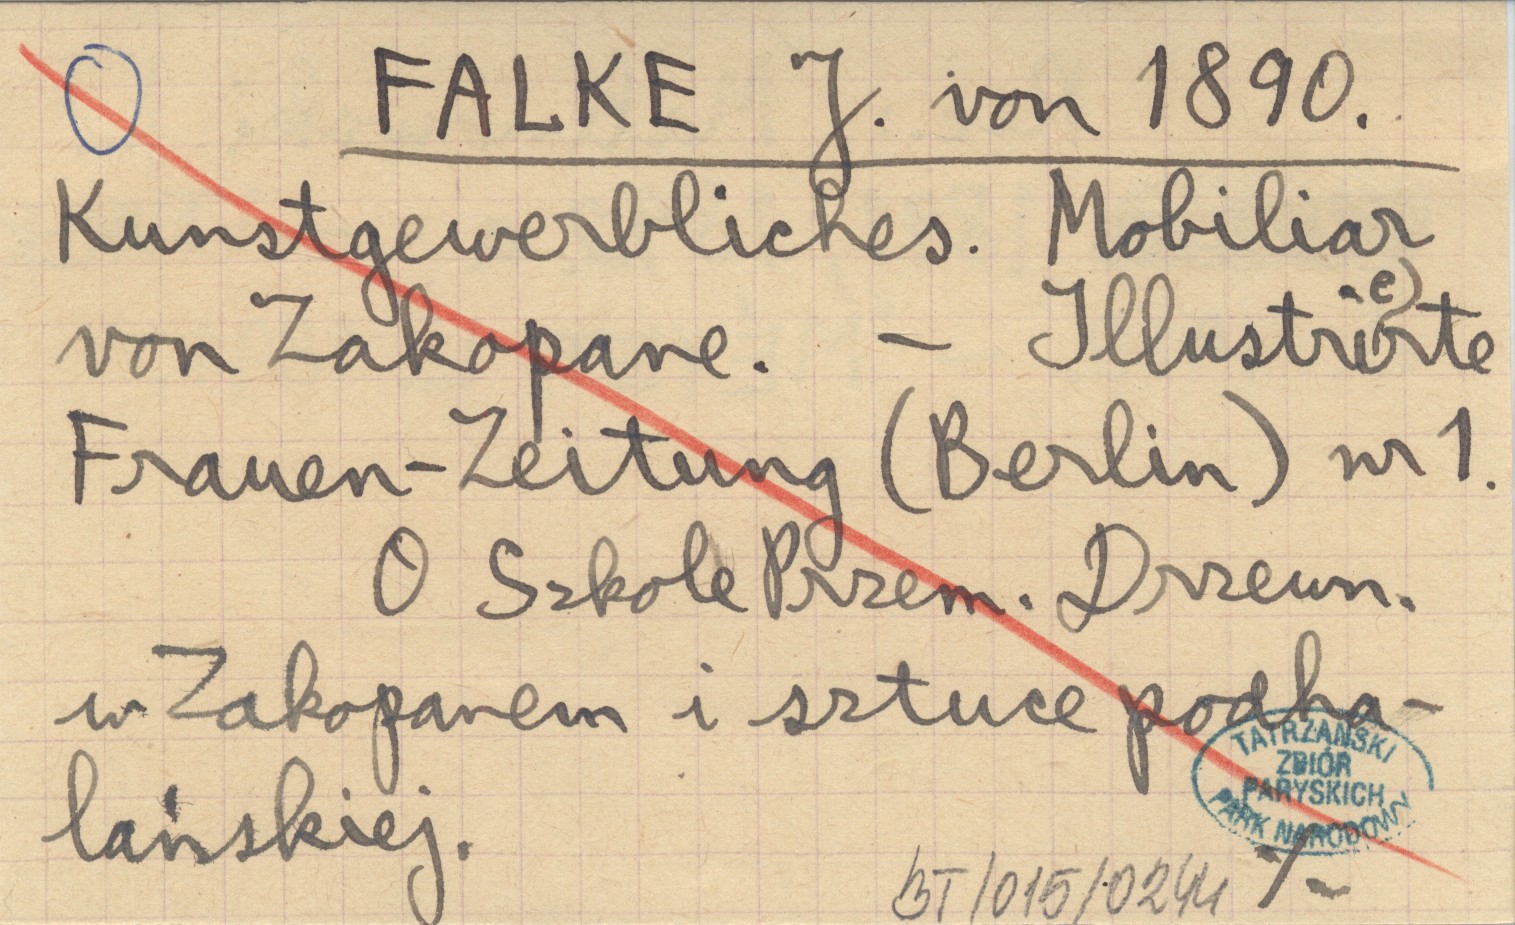 FALKE J. von 1890.
Kunstgewerbliches. Mobiliar
von Zakopane. – Illustri(e)rte
Frauen-Zeitung (Berlin) nr 1.
O Szkole Przem. Drzewn.
w Zakopanem i sztuce podha-
lańskiej.
TATRZAŃSKI
ZBIÓR
PARYSKICH
PARK NARODOWY
BT/015/0244